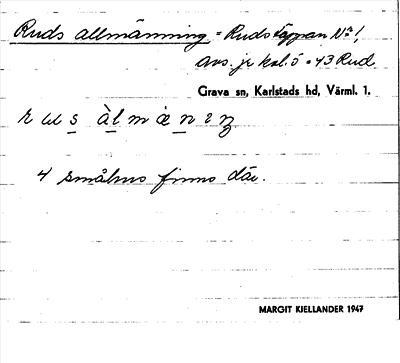 Ruds allmänning = Rudstäppan No 1,
avs. jr kol. 5 • 43 Rud
Grava sn, Karlstads hd, Värml. 1.
àl m æ n
4 småhus finns där.
MARGIT KJELLANDER 1947